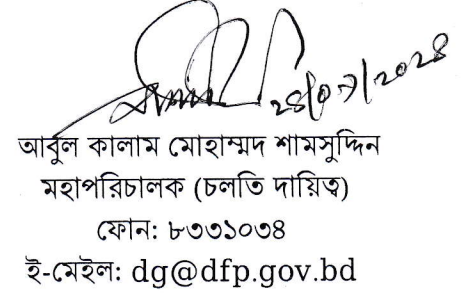 ২৪/০৭/২০২৪
আবুল কালাম মোহাম্মদ শামসুদ্দিন
মহাপরিচালক (চলতি দায়িত্ব)
ফোন: ৮৩৩১০৩৪
ই-মেইল: dg@dfp.gov.bd